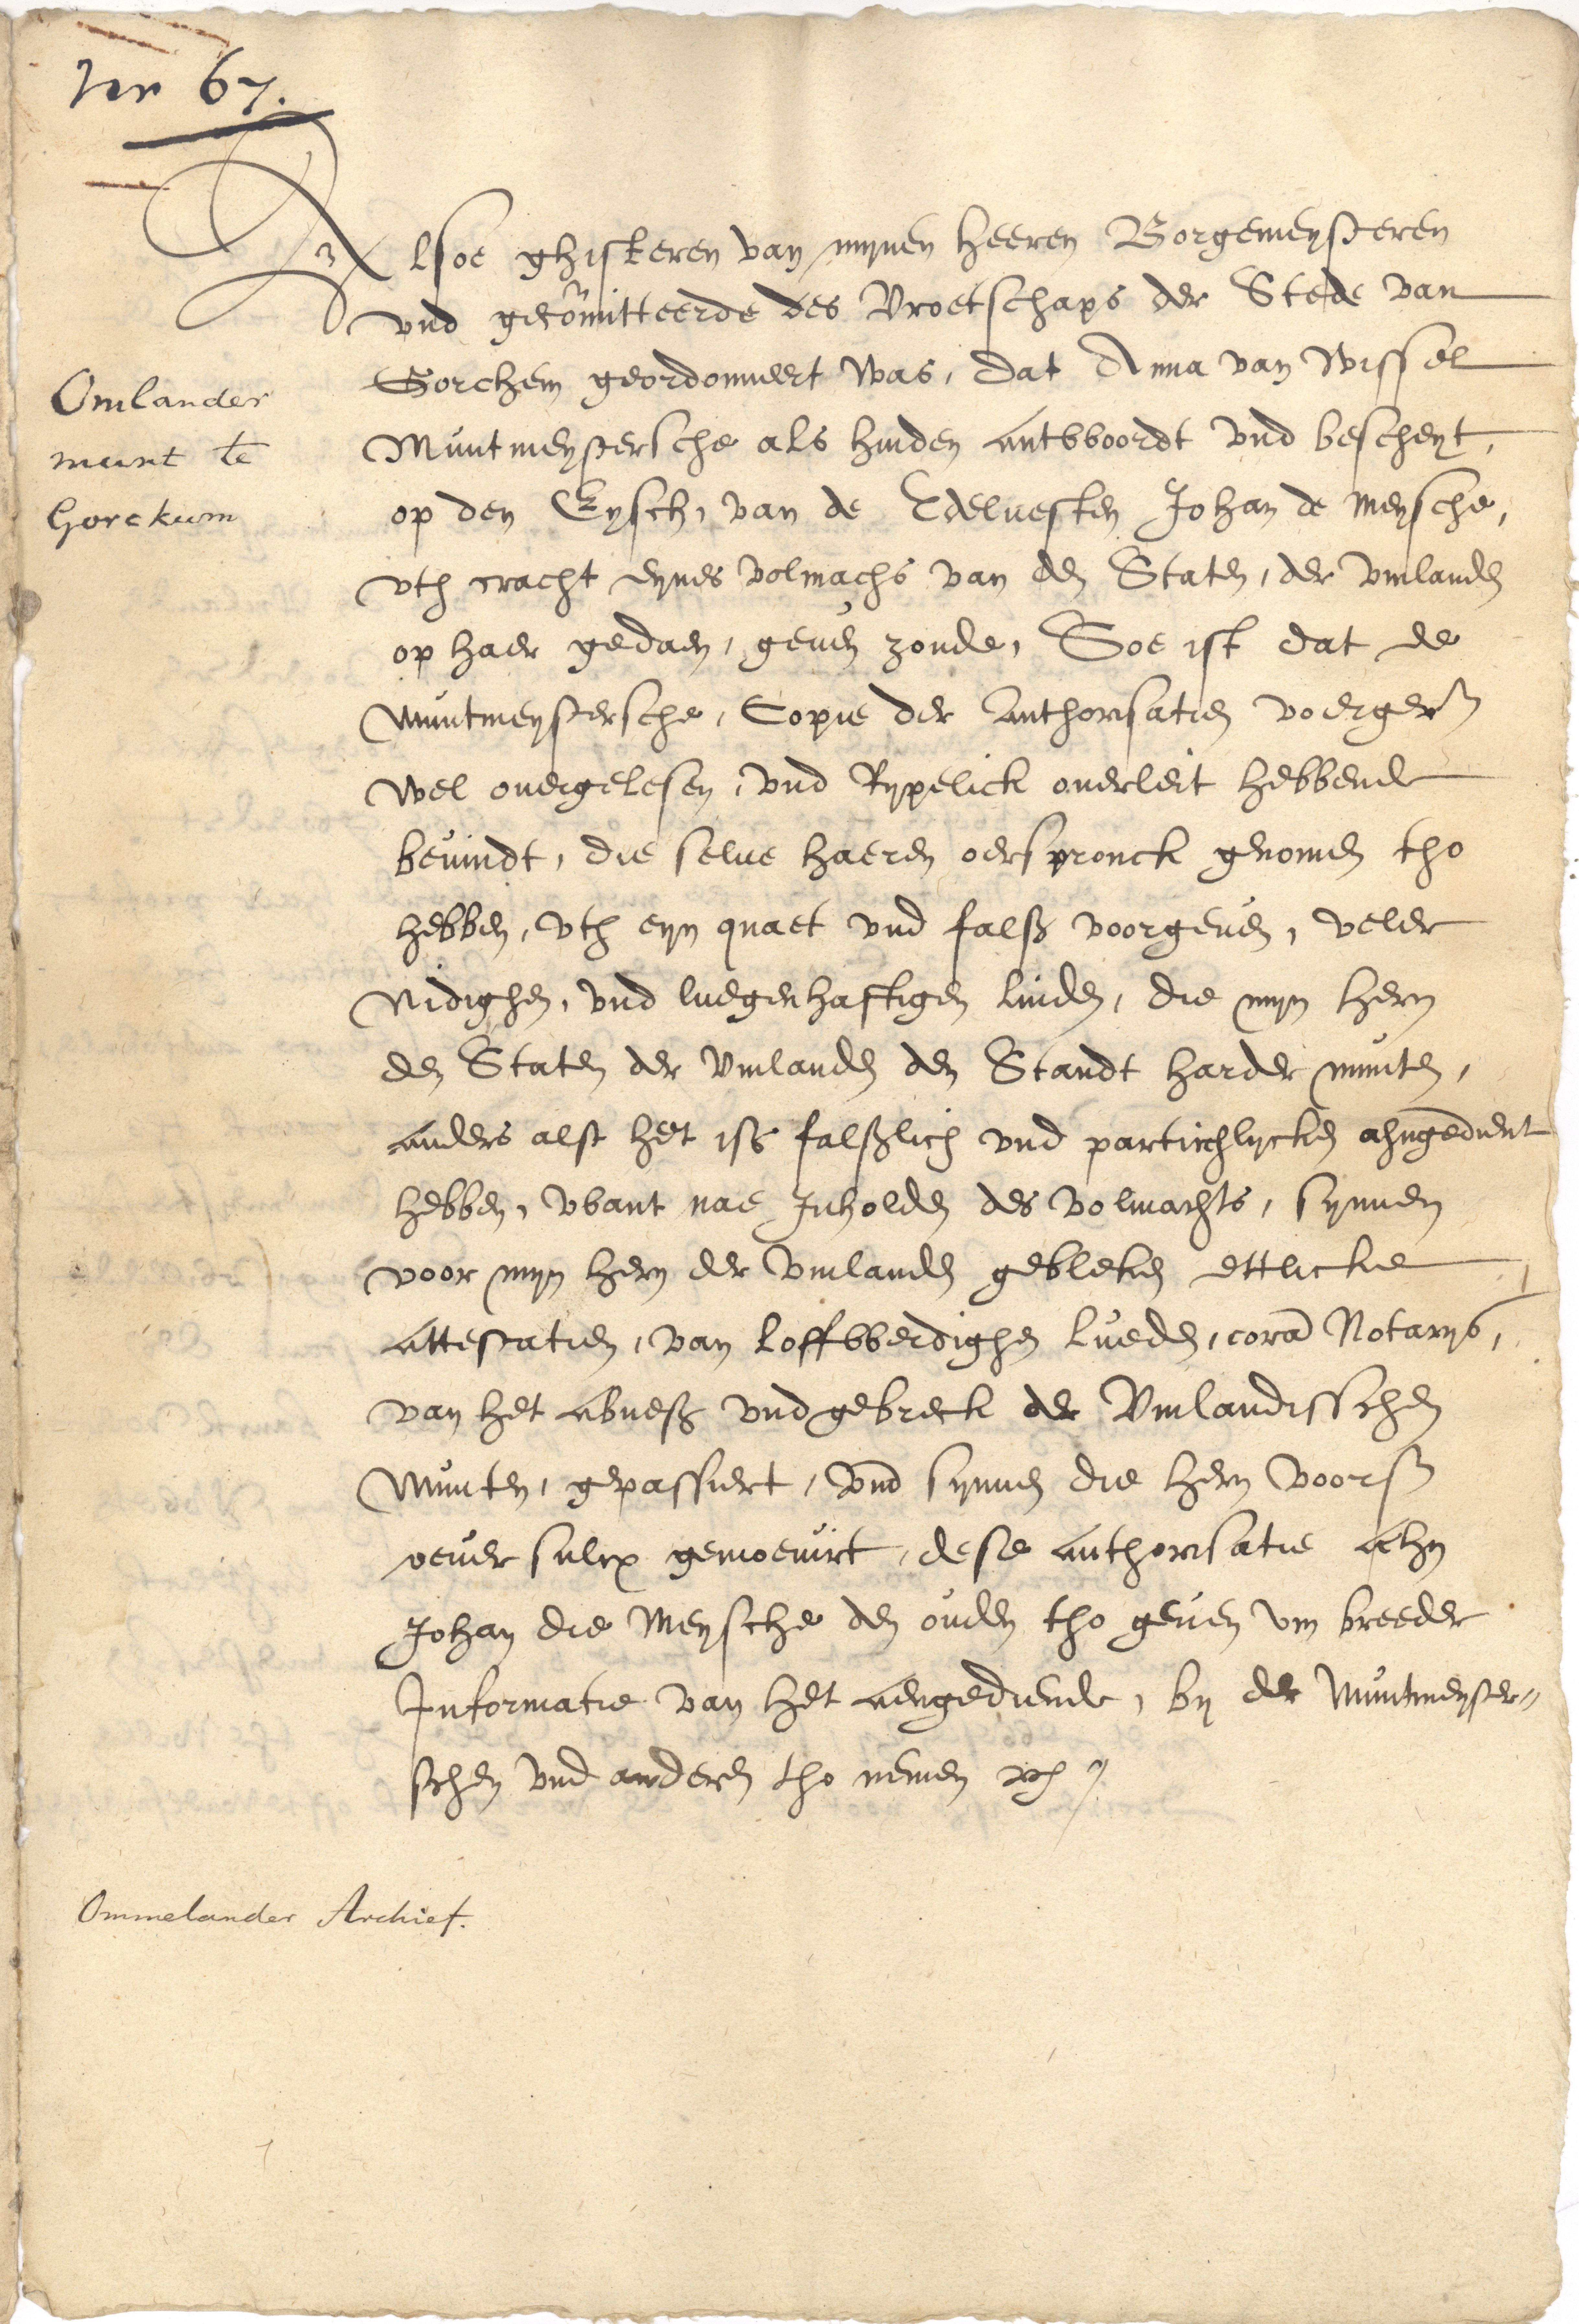 Nr 67.
Alsoe ghisteren van mynen Heeren Borgemeysteren
vnd gecom̃itteerde des Vroetschaps der Stede van
Gorchem geordonneert was, dat Anna van Wissel
Omlander
munt te
Gorckum
Muntmeystersche als huiden antwoordt vnd bescheyt,
op den Eysch, van de Edeluesten Johan de Meysche,
vth cracht eynes volmachs van den Staten, der Vmlanden
op haer gedaen, geuen zoude, Soe ist dat de
Muntmeystersche, Copie der Authorisatien voerger.
wel ouergelesen, vnd Rypelick ouerleit hebbende
beuindt, die selue haeren oerspronck genomen tho
hebben, vth eyn quaet vnd falsch voorgeuen, veler
Nidighen, vnd luegenhaftigen luiden, die myn hern
den Staten der Vmlanden den Standt harder munten,
anders alst het iss falschlich vnd partirhlycken ahngedient
hebben, want nae Inholden des volmachts, synnen
voor myn hern der Vmlanden gebleken ettlicke
attestatien, van loffwerdighen Lueden, corã Notarys,
van het abuess vnd gebreck der Vmlandisschen
Munten, gepassiert, vnd synnen die hern voors.
oeuer sulcx gemoeuirt, dese authorisatie ahn
Johan die Meysche den ouden tho geuen vm breeder
Informatie van het aengediende, by der Muntmeyster=
schen vnd anderen tho nemen etc.
Ommelander Archief.